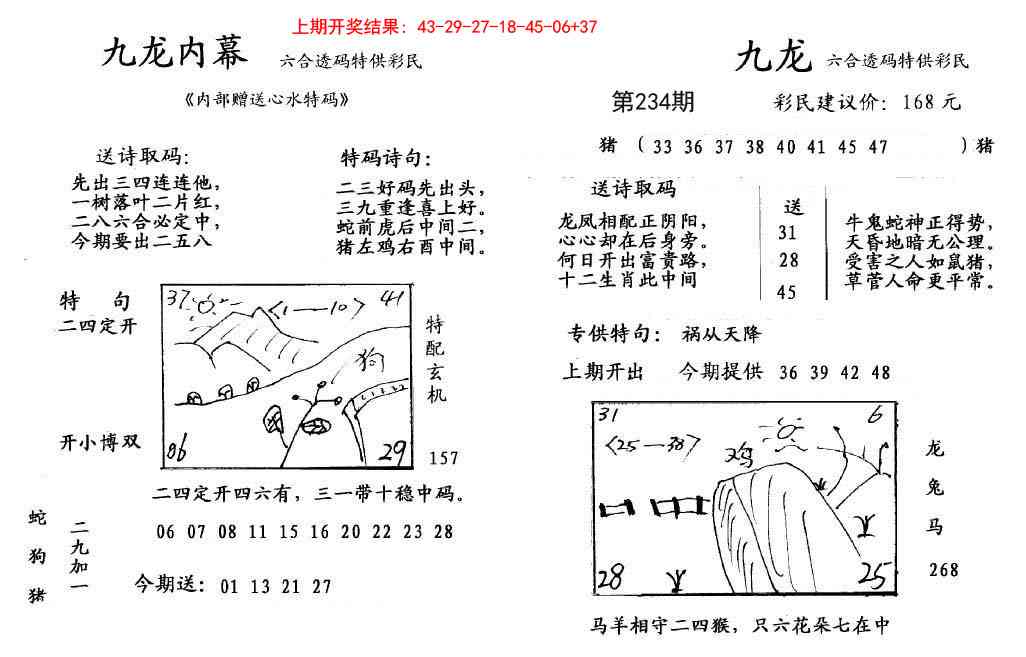 上期开奖结果：43-29-27-18-45-06+37
九龙内幕 六合透码特供彩民
《内部赠送心水特码》
送诗取码：
先出三四连连他，
一树落叶二片红，
二八六合必定中，
今期要出二五八
特码诗句：
二三好码先出头，
三九重逢喜上好。
蛇前虎后中间二，
猪左鸡右酉中间。
特 句
二四定开
开小博双
37 41
<1—10>
狗
06 29
特配玄机
157
二四定开四六有，三一带十稳中码。
蛇
狗
猪
二九加一
06 07 08 11 15 16 20 22 23 28
今期送：01 13 21 27
九龙 六合透码特供彩民
第234期 彩民建议价：168元
猪（33 36 37 38 40 41 45 47 ）猪
送诗取码
龙凤相配正阴阳，
心心却在后身旁。
何日开出富贵路，
十二生肖此中间
送
31
28
45
牛鬼蛇神正得势，
天昏地暗无公理。
受害之人如鼠猪，
草菅人命更平常。
专供特句： 祸从天降
上期开出 今期提供 36 39 42 48
31 6
<25—38>
鸡
28 25
龙
兔
马
268
马羊相守二四猴，只六花朵七在中